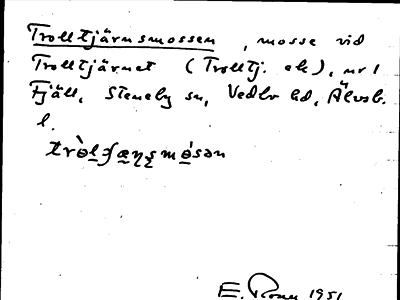 Trolltjärnsmossen, mosse vid
Trolltjärnet (Trolltj. ek), nr 1
Fjäll, Steneby sn, Vedbo hd, Älvsb.
l.
E. Rosu 1951